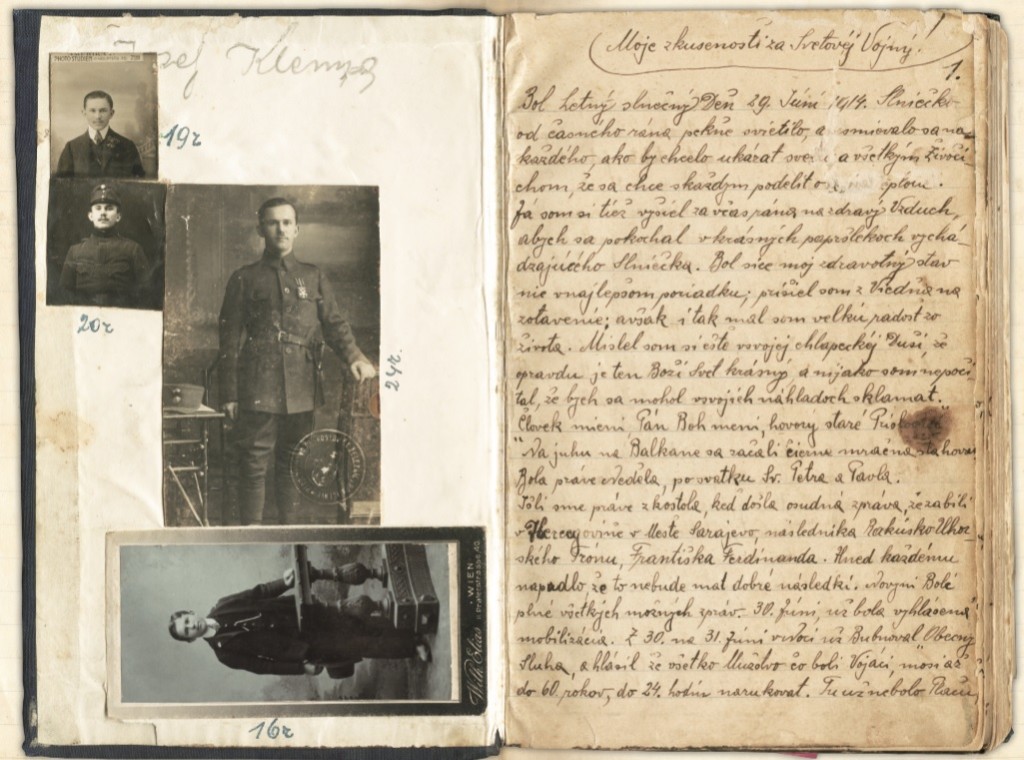 Klempa
19r
20r
24r.
WIEN
16r
Moje zkusenosti za Svetovéj Vojny!
1.
Bol Letný slnečný Deň 29. Júni 1914. Slniečko
od časného rána pekne svietilo, a usmievalo sa na
každého, ako by chcelo ukázat a všetkým živoči
chom, že sa chce skaždým podelit
Já som si tiež vyšiel za včas rána na zdravý Vzduch,
abych sa pokochal v krásných papršlekoch vychá
dzajúcého Slniečka. Bol sice moj zdravotný stav
nie vnajlepšom poriadku; prišiel som z Viedňa na
zotavenie; avšák i tak mal som velkú radost zo
života. Mislel som si ešte vsvojej chlapeckéj Duši, že
opravdu je ten Boží Svet krásný a nijako som nepoči
tal, že bych sa mohol vsvojich náhladoch sklamat.
Človek mieni, Pán Boh mení, hovorý staré
"Na juhu na Balkane sa začali čierne mračna stahovat
Bola práve Nedela, po svatku Sv. Petra a Pavla.
Išli sme práve z kostola, ked došla osudná zpráva, že zabili
v Hercegovine v Meste Sarajevo, následnika Rakúsko Uhor
ského Trónu, Františka Ferdinanda. Hned každému
napadlo že to nebude mat dobré následki. Noviny Bolé
plné všetkých možných zpráv. 30. Júni, už bola vyhlásená
mobilizácia. Z 30. na 31. Júni vNoci už Bubnoval Obecný
Sluha, a hlásil že všetko Mužstvo čo boli Vojáci, mosi až
do 60. rokov, do 24. hodín narukovat. Tu už nebolo